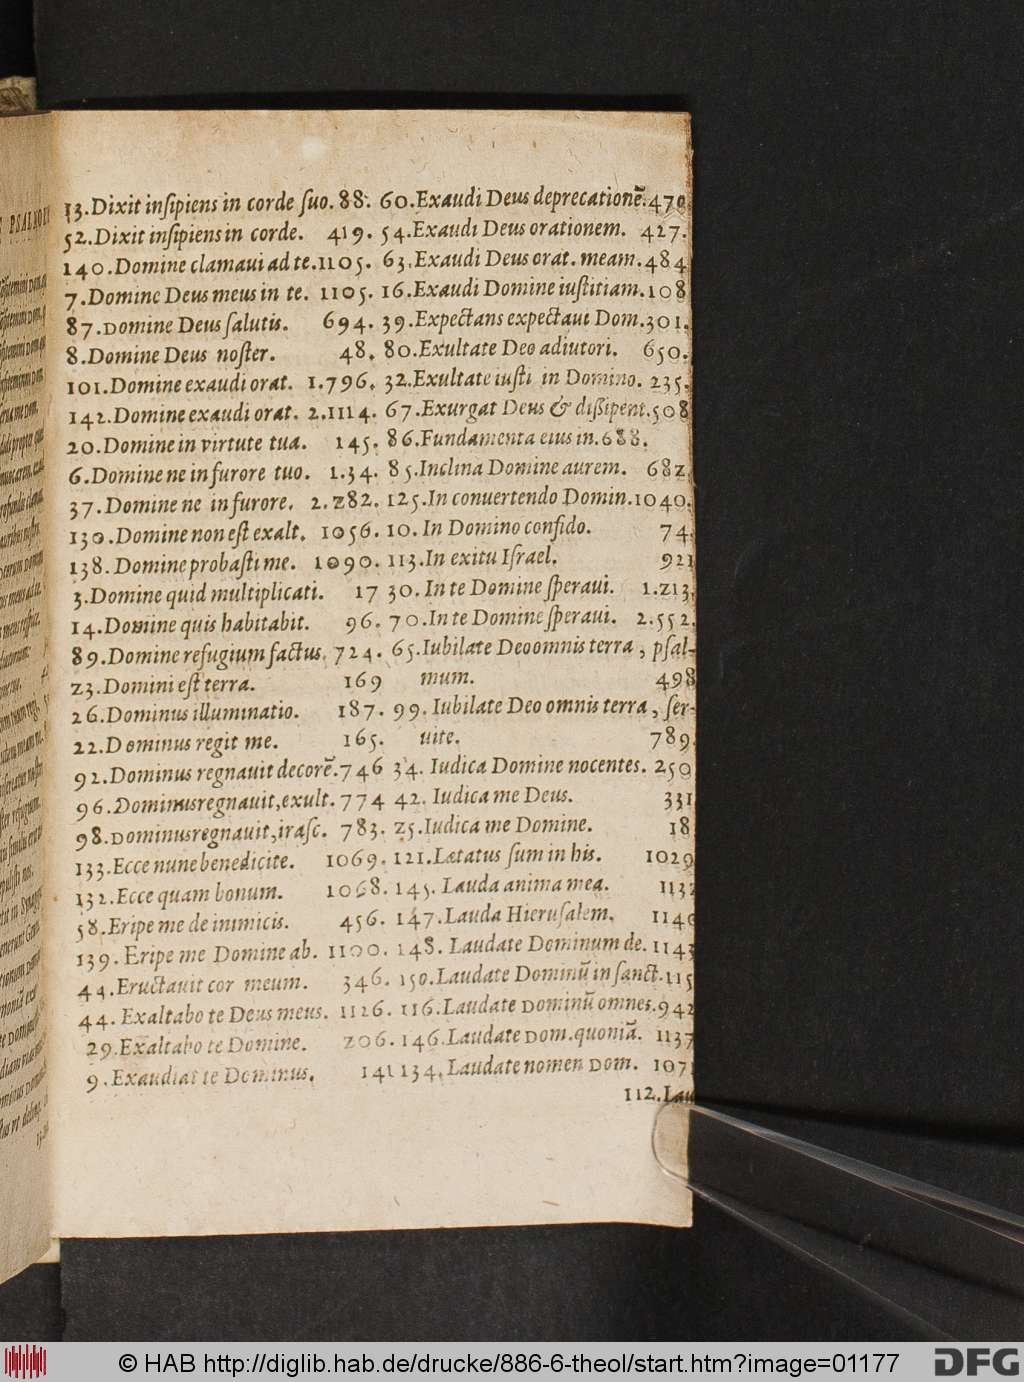 13.Dixit inſipiens in corde ſuo. 88.
52.Dixit inſipiens in corde. 419.
140.Domine clamaui ad te.1105.
7.Domine Deus meus in te. 1105.
87.Domine Deus ſalutis. 694.
8.Domine Deus noſter. 48.
101.Domine exaudi orat. 1.796.
142.Domine exaudi orat. 2.1114.
20.Domine in virtute tua. 145.
6.Domine ne in furore tuo. 1.34.
37.Domine ne in furore. 2.282.
130.Domine non eſt exalt. 1056.
138.Domine probaſti me. 1090.
3.Domine quid multiplicati. 17
14.Domine quis habitabit. 96.
89.Domine refugium factus. 724.
23.Domini eſt terra. 169
26.Dominus illuminatio. 187.
22.Dominus regit me. 165.
92.Dominus regnauit decorē.746
96.Dominus regnauit,exult. 774
98.Dominus regnauit,iraſc. 783.
133.Ecce nune benedicite. 1069.
132.Ecce quam bonum. 1068.
58.Eripe me de inimicis. 456.
139. Eripe me Domine ab. 1100.
44.Eructauit cor meum. 346.
44. Exaltabo te Deus meus. 1126.
29.Exaltabo te Domine. 206.
9.Exaudiat te Dominus. 141
60.Exaudi Deus deprecationē.470
54.Exaudi Deus orationem. 427.
63.Exaudi Deus orat. meam.484
16.Exaudi Domine iuſtitiam.108
39.Expectans expectaui Dom.301.
80.Exultate Deo adiutori. 650.
32.Exultate iuſti in Domino. 235.
67.Exurgat Deus & diſſipent.508
86.Fundamenta eius in.688.
85.Inclina Domine aurem. 682
125.In conuertendo Domin.1040.
10.In Domino confido. 74
113.In exitu Iſrael. 921
30.In te Domine ſperaui. 1.213.
70.In te Domine ſperaui. 2.552.
65.Iubilate Deo omnis terra, pſal-
mum. 498
99. Iubilate Deo omnis terra, ſer-
uite. 789
34. Iudica Domine nocentes. 250
42. Iudica me Deus. 331
25.Iudica me Domine. 18
121.Lætatus ſum in his. 1029
145. Lauda anima mea. 1137
147.Lauda Hieruſalem. 1140
148. Laudate Dominum de. 1143
150.Laudate Dominū in ſanct.115
116.Laudate Dominū omnes.942
146.Laudate Dom.quoniā. 1137
134.Laudate nomen Dom. 1071
112.Lau
© HAB http://diglib.hab.de/drucke/886-6-theol/start.htm?image=01177
DFG